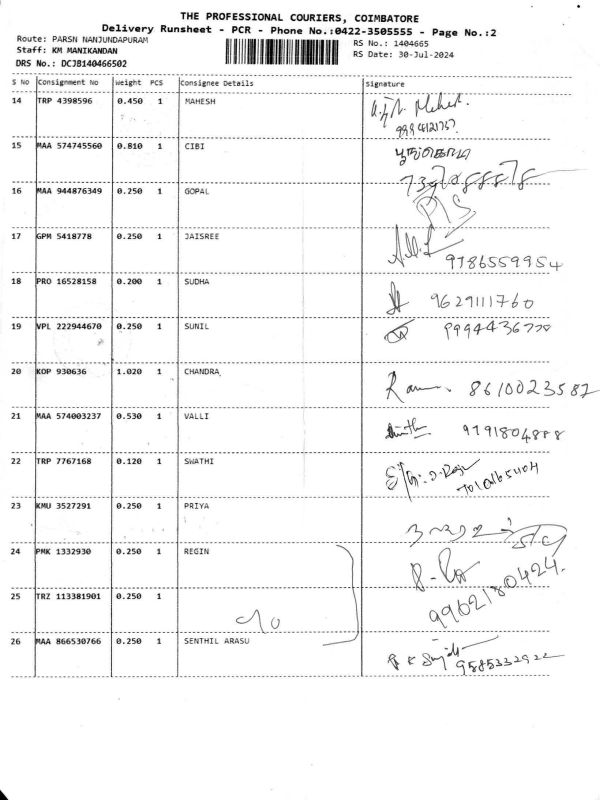 THE PROFESSIONAL COURIERS, COIMBATORE
Delivery Runsheet - PCR - Phone No.:0422-3505555 - Page No.:2
Route: PARSN NANJUNDAPURAM
RS No.: 1404665
Staff: KM MANIKANDAN
RS Date: 30-Jul-2024
DRS No.: DCJB140466502
S No Consignment No weight PCS Consignee Details Signature
14 TRP 4398596 0.450 1 MAHESH
15 MAA 574745560 0.810 1 CIBI
16 MAA 944876349 0.250 1 GOPAL
17 GPM 5418778 0.250 1 JAISREE
9786559954
18 PRO 16528158 0.200 1 SUDHA 9629111760
19 VPL 222944670 0.250 1 SUNIL
20 KOP 930636 1.020 1 CHANDRA
8610023582
21 MAA 574003237 0.530 1 VALLI
9791804888
22 TRP 7767168 0.120 1 SWATHI
23 KMU 3527291 0.250 1 PRIYA
24 PMK 1332930 0.250 1 REGIN
25 TRZ 113381901 0.250 1
9962180424.
26 MAA 866530766 0.250 1 SENTHIL ARASU
9585332922